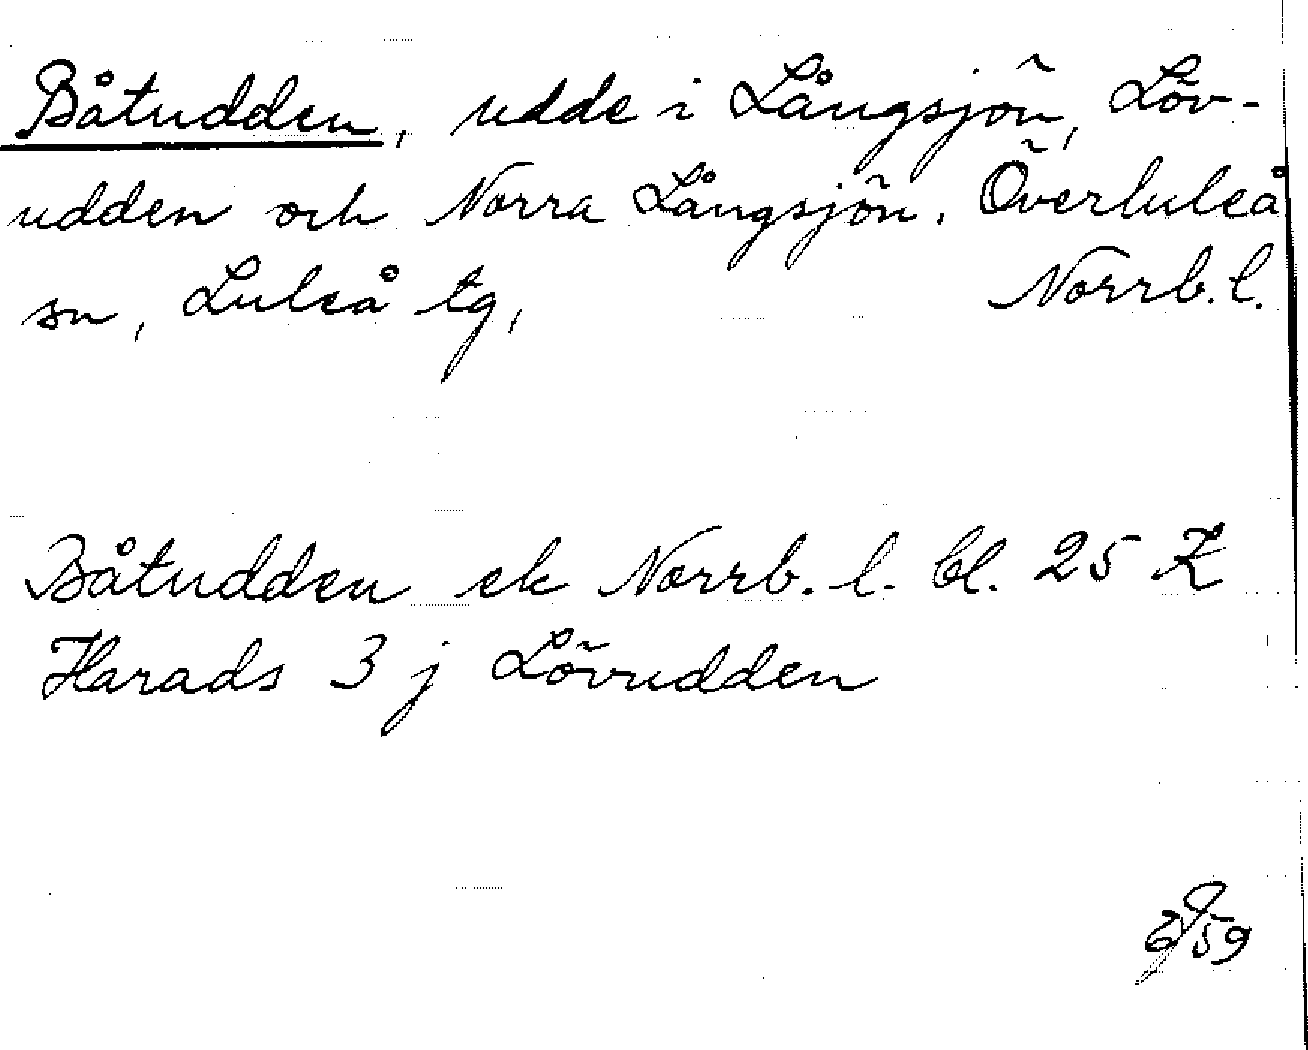 Båtudden, udde i Långsjön, Löv-
udden och Norra Långsjön. Överluleå
sn, Luleå tg, Norrb. l.
Båtudden ek Norrb. l. bl. 25 K
Harads 3 j Lövudden